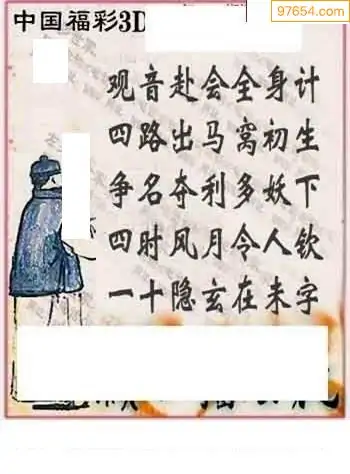 97654.com
中国福彩3D
观音赴会全身计
四路出马窝初生
争名夺利多妖下
四时风月令人钦
一十隐玄在未字